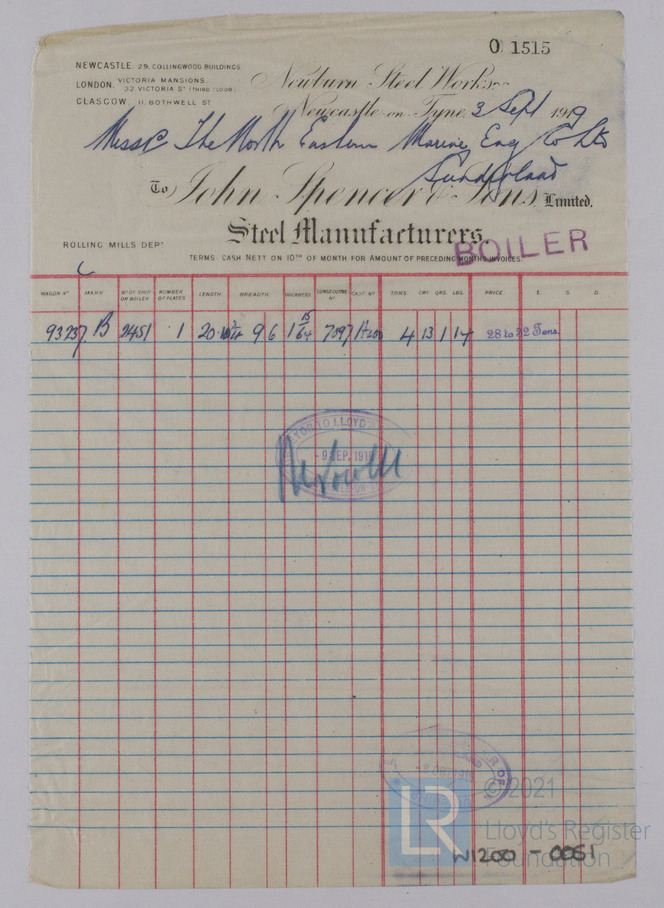 O 1515
NEWCASTLE. 29, COLLINGWOOD BUILDINGS.
LONDON. VICTORIA MANSIONS,
32 VICTORIA ST (THIRD FLOOR)
GLASGOW. 11, BOTHWELL ST
Newburn Steel Works
Newcastle-on-Tyne, 3 Sept 1919
Messrs The North Eastern Marine Eng Co Ltd
Sunderland
To John Spencer & Sons, Limited,
Steel Manufacturers.
ROLLING MILLS DEPT
BOILER
TERMS CASH NETT ON 10TH OF MONTH FOR AMOUNT OF PRECEDING MONTHS INVOICES.
WAGON No MARK No OF SHIP OR BOILER NUMBER OF PLATES LENGTH BREADTH THICKNESS CONSECUTIVE No CAST No TONS. CWT QRS. LBS. PRICE £ S. D.
93237 B 2451 1 20 9 6 1 15/64 7097 4 13 1 14 28 to 32 Tons.
TO LLOYD'S
- 9 SEP. 1919
LR
© 2021
Lloyd's Register
Foundation
W1200 - 0051